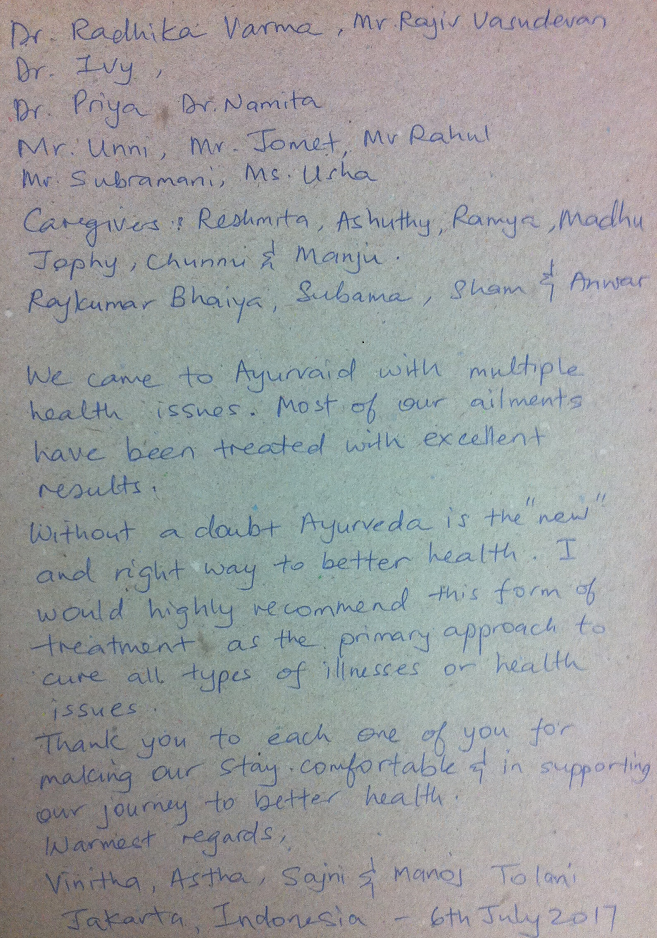 Dr. Radhika Varma, Mr. Rajiv Vasudevan
Dr. Ivy,
Dr. Priya, Dr. Namita
Mr. Unni, Mr. Jomet, Mr Rahul
Mr. Subramani, Ms. Usha
Caregivers: Reshmita, Ashuthy, Ramya, Madhu
Jophy, Chunnu & Manju.
Rajkumar Bhaiya, Subama, Sham & Anwar
We came to Ayurvaid with multiple
health issues. Most of our ailments
have been treated with excellent
results.
Without a doubt Ayurveda is the "new"
and right way to better health. I
would highly recommend this form of
treatment as the primary approach to
cure all types of illnesses or health
issues.
Thank you to each one of you for
making our stay comfortable & in supporting
our journey to better health.
Warmest regards,
Vinitha, Astha, Sajni & Manoj Tolani
Jakarta, Indonesia - 6th July 2017